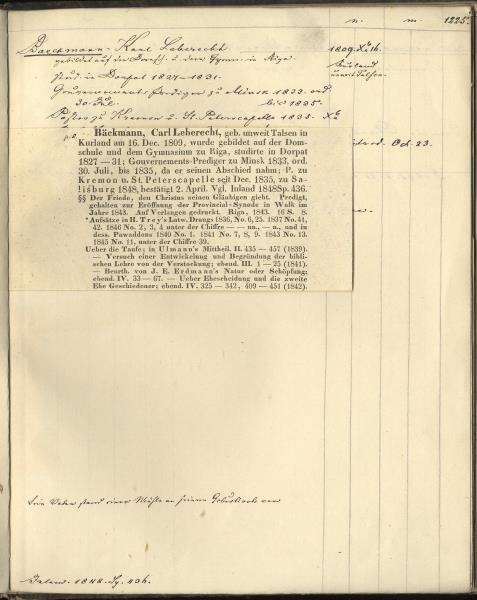 n. m. 1225.
Baeckmann - Karl Leberecht 1809. Xbr 16.
gebildet auf der Domsch. u. dem Gymn. in Riga. Curland
stud. in Dorpat 1827-1831. unweit Talsen.
Gouvernements Prediger zu Minsk 1833. ord.
30. Jul. bis 1835.
Pastor zu Kremon u. St. Peterscapelle 1835. Xbr
p.2.
Bäckmann, Carl Leberecht, geb. unweit Talsen in
Kurland am 16. Dec. 1809, wurde gebildet auf der Dom-
schule und dem Gymnasium zu Riga, studirte in Dorpat
1827 — 31; Gouvernements-Prediger zu Minsk 1833, ord.
30. Juli, bis 1835, da er seinen Abschied nahm; P. zu
Kremon u. St. Peterscapelle seit Dec. 1835, zu Sa-
lisburg 1848, bestätigt 2. April. Vgl. Inland 1848 Sp. 436.
§§ Der Friede, den Christus seinen Gläubigen giebt. Predigt,
gehalten zur Eröffnung der Provincial-Synode in Walk im
Jahre 1843. Auf Verlangen gedruckt. Riga, 1843. 16 S. 8.
*Aufsätze in H. Trey's Latw. Draugs 1836, No. 6, 25. 1837 No. 41,
42. 1846 No. 2, 3, 4 unter der Chiffre — — nn., — n., und in
dess. Pawaddons 1840 No. 1. 1841 No. 7, 8, 9. 1843 No. 13.
1845 No. 11, unter der Chiffre 39.
Ueber die Taufe; in Ulmann's Mittheil. II. 435 — 457 (1839).
— Versuch einer Entwickelung und Begründung der bibli-
schen Lehre von der Verstockung; ebend. III. 1 — 25 (1841).
— Beurth. von J. E. Erdmann's Natur oder Schöpfung;
ebend. IV. 33 — 67. — Ueber Ehescheidung und die zweite
Ehe Geschiedener; ebend. IV. 325 — 342, 409 — 451 (1842).
ord. Oct. 23.
Sein Vater stand einer Mühle an seinem Geburtsort vor
Inland. 1848. Sp. 436.